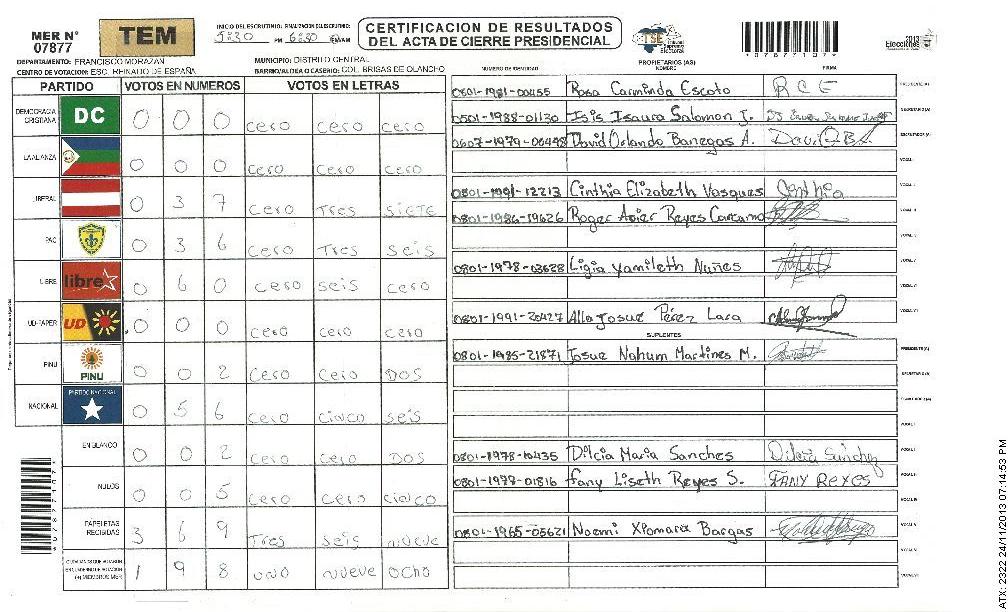 MER N° 07877
TEM
INICIO DEL ESCRUTINIO: FINALIZACION DEL ESCRUTINIO:
5:30 PM 6:30
CERTIFICACION DE RESULTADOS
DEL ACTA DE CIERRE PRESIDENCIAL
TSE Tribunal Supremo Electoral
2013 Elecciones
DEPARTAMENTO: FRANCISCO MORAZAN
MUNICIPIO: DISTRITO CENTRAL
CENTRO DE VOTACION: ESC. REINADO DE ESPAÑA
BARRIO/ALDEA O CASERIO: COL. BRISAS DE OLANCHO
PARTIDO VOTOS EN NUMEROS VOTOS EN LETRAS
DEMOCRACIA CRISTIANA DC 0 0 0 cero cero cero
LA ALIANZA 0 0 0 cero cero cero
LIBERAL 0 3 7 cero Tres siete
PAC 0 3 6 cero Tres seis
LIBRE libre 0 6 0 cero seis cero
UD-FAPER UD 0 0 0 cero cero cero
PINU PINU 0 0 2 cero cero DOS
NACIONAL PARTIDO NACIONAL 0 5 6 cero cinco seis
EN BLANCO 0 0 2 cero cero DOS
NULOS 0 0 5 cero cero cinco
PAPELETAS RECIBIDAS 3 6 9 Tres seis nueve
CIUDADANOS QUE VOTARON EN CUADERNO DE VOTACION (+) MIEMBROS MER 1 9 8 uno nueve ocho
NUMERO DE IDENTIDAD PROPIETARIOS (AS) NOMBRE FIRMA
0801-1981-00455 Rosa Carminda Escoto R C E PRESIDENTE(A)
0501-1988-01130 Isis Isaura Salomon J. SECRETARIO(A)
0607-1979-00448 David Orlando Banegas A. ESCRUTADOR(A)
0801-1991-12213 Cinthia Elizabeth Vasques Cinthia
0801-1986-19626 Roger Avier Reyes Carcamo
0801-1978-03628 Ligia Yamileth Nuñes
0801-1991-20427 Allo Josue Pérez Lara
SUPLENTES
0801-1985-21871 Josue Nahum Martines M. PRESIDENTE(A)
SECRETARIO(A)
ESCRUTADOR(A)
0801-1978-10435 Dilcia Maria Sanches Dilcia Sanchez
0801-1978-01816 Fany Liseth Reyes S. FANY REYES
0801-1965-05621 Noemi Xiomara Bargas
078771071
ATX: 2322 24/11/2013 07:14:53 PM